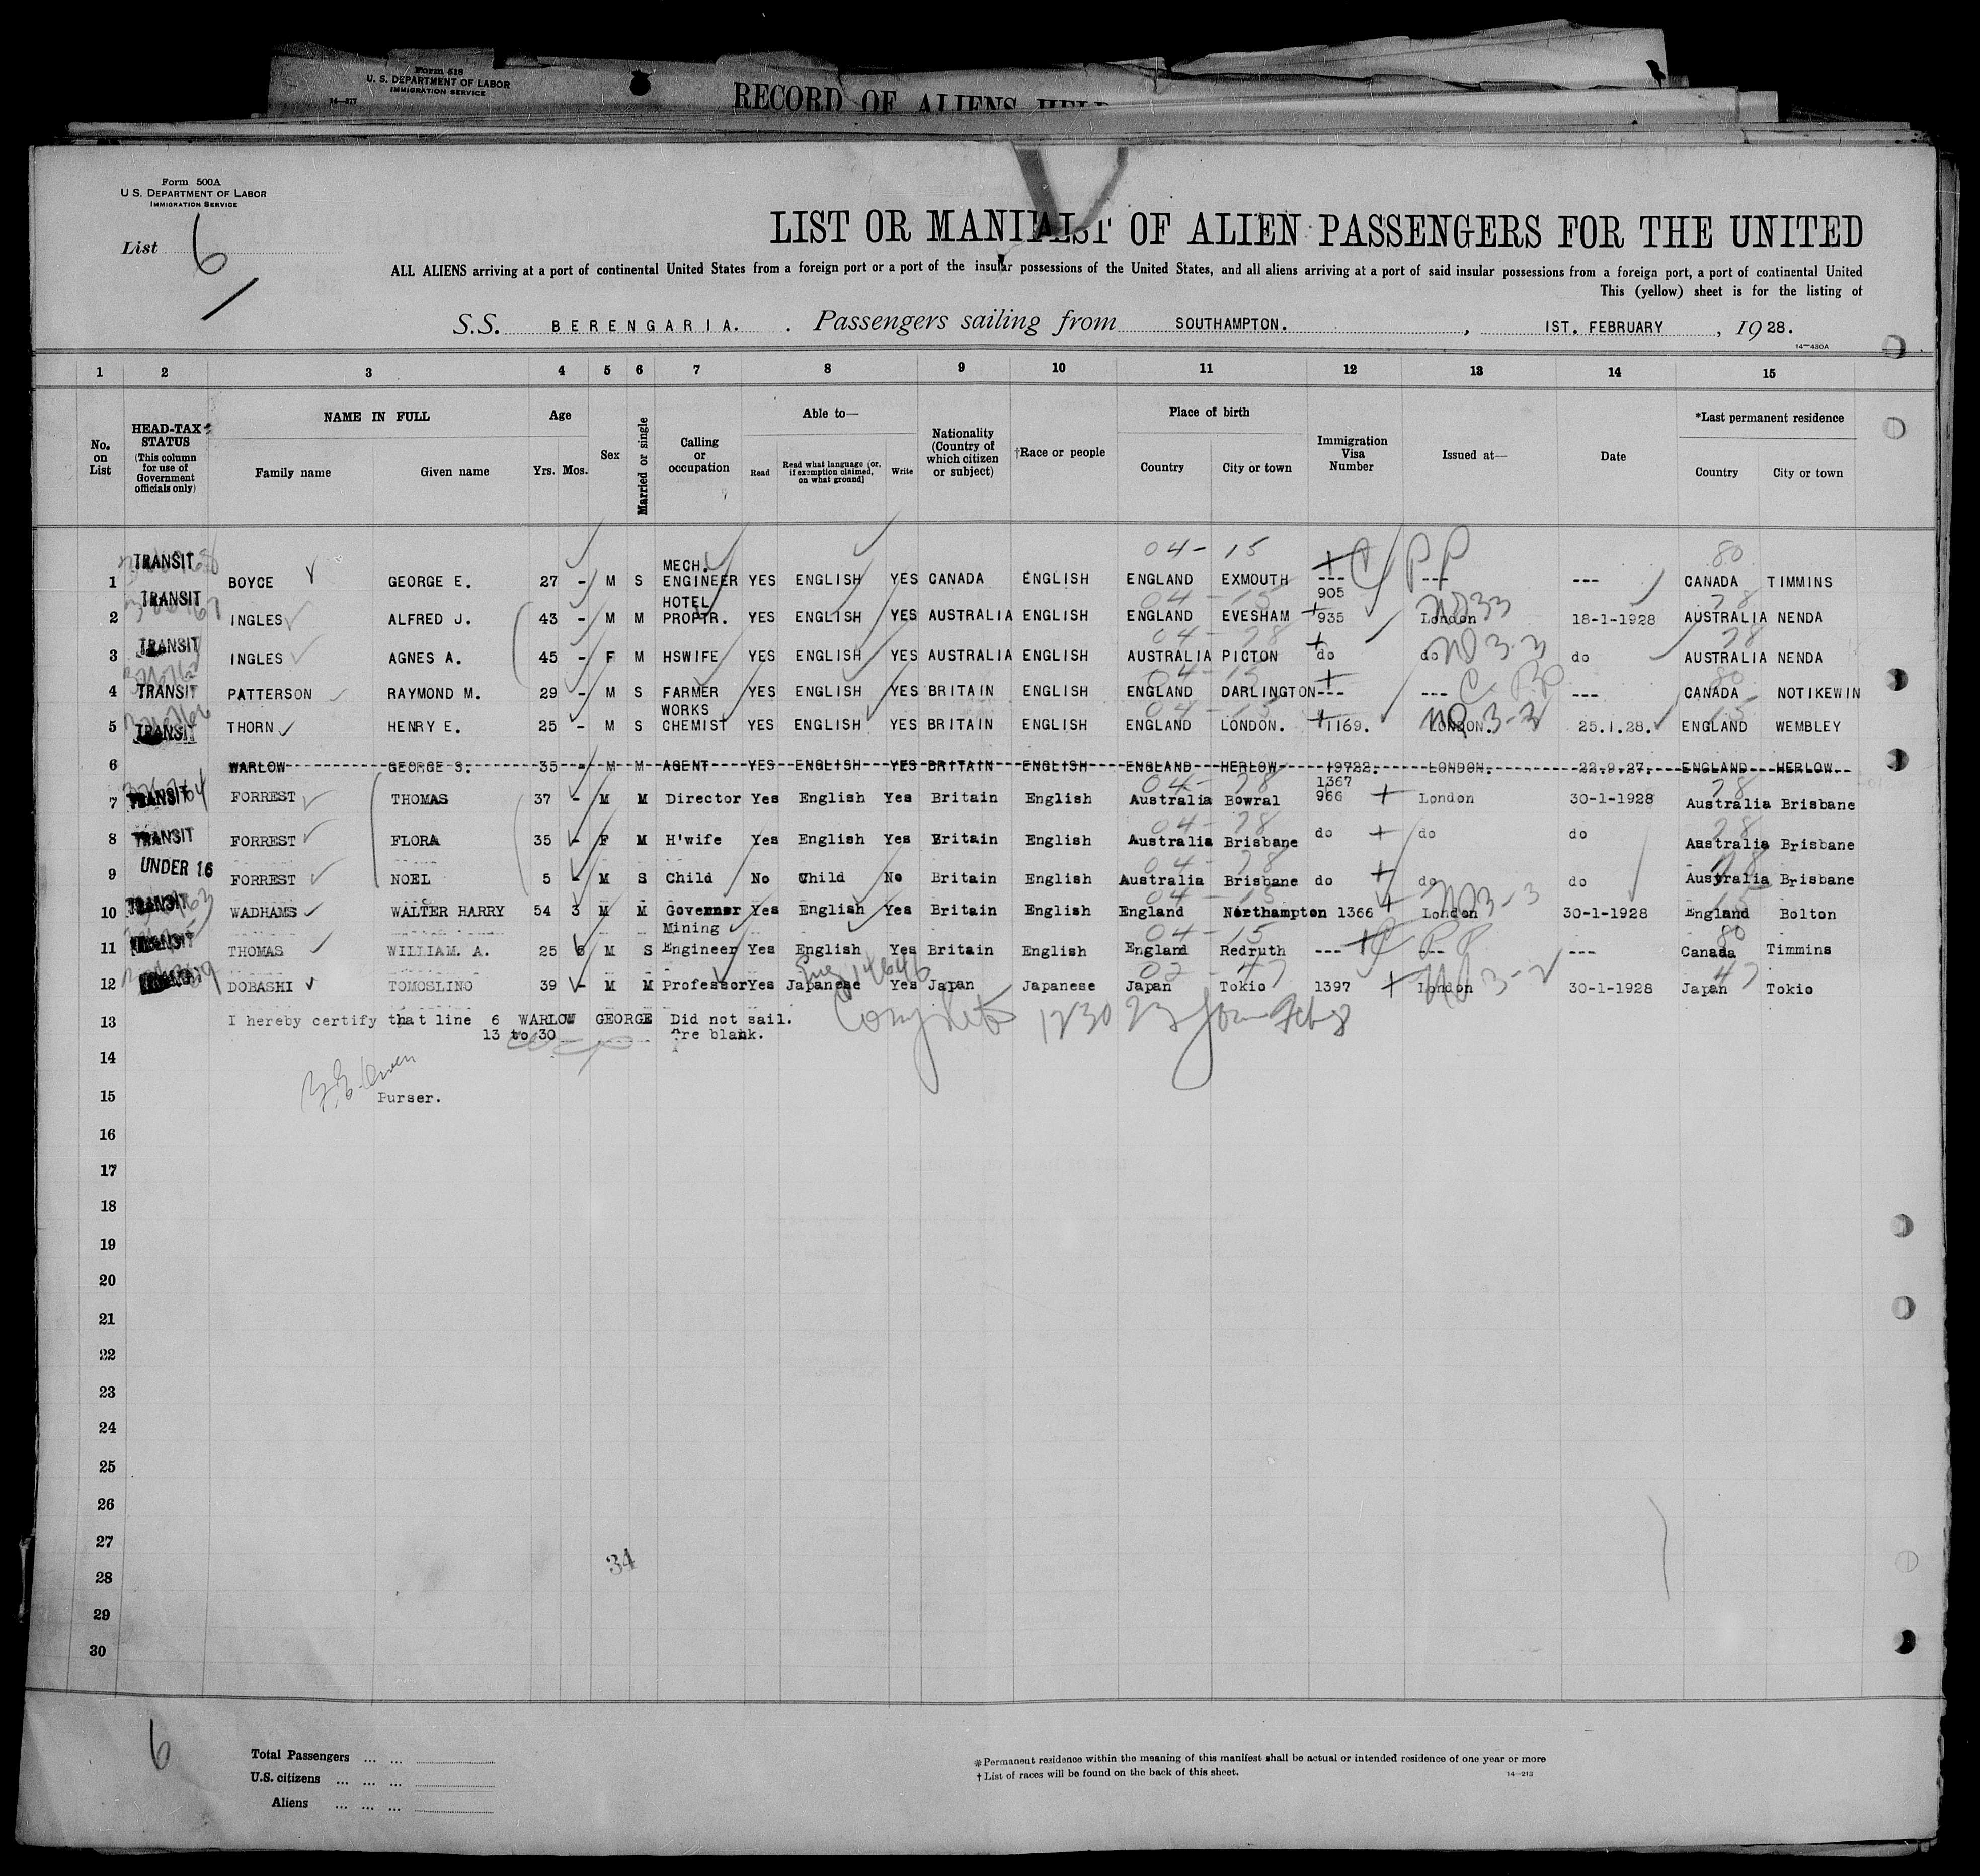 Form 518
U. S. DEPARTMENT OF LABOR
IMMIGRATION SERVICE
16—377
RECORD OF ALIENS HELD
Form 500A
U. S. DEPARTMENT OF LABOR
IMMIGRATION SERVICE
List 6
LIST OR MANIFEST OF ALIEN PASSENGERS FOR THE UNITED
ALL ALIENS arriving at a port of continental United States from a foreign port or a port of the insular possessions of the United States, and all aliens arriving at a port of said insular possessions from a foreign port, a port of continental United
This (yellow) sheet is for the listing of
S.S. BERENGARIA. Passengers sailing from SOUTHAMPTON. , 1ST. FEBRUARY , 1928.
14—430A
1 2 3 4 5 6 7 8 9 10 11 12 13 14 15
No. on List
HEAD-TAX STATUS (This column for use of Government officials only)
NAME IN FULL
Family name Given name
Age
Yrs. Mos.
Sex
Married or single
Calling or occupation
Able to—
Read Read what language (or, if exemption claimed, on what ground) Write
Nationality (Country of which citizen or subject)
†Race or people
Place of birth
Country City or town
Immigration Visa Number
Issued at—
Date
*Last permanent residence
Country City or town
04 - 15 80
1 TRANSIT BOYCE GEORGE E. 27 - M S MECH. ENGINEER YES ENGLISH YES CANADA ENGLISH ENGLAND EXMOUTH --- C PP --- --- CANADA TIMMINS
04 - 15 78
2 TRANSIT INGLES ALFRED J. 43 - M M HOTEL PROPTR. YES ENGLISH YES AUSTRALIA ENGLISH ENGLAND EVESHAM 905 935 London 18-1-1928 AUSTRALIA NENDA
04 - 78 78
3 TRANSIT INGLES AGNES A. 45 - F M HSWIFE YES ENGLISH YES AUSTRALIA ENGLISH AUSTRALIA PICTON do do do AUSTRALIA NENDA
04 - 15 80
4 TRANSIT PATTERSON RAYMOND M. 29 - M S FARMER YES ENGLISH YES BRITAIN ENGLISH ENGLAND DARLINGTON --- --- --- CANADA NOTIKEWIN
04 - 15 15
5 TRANSIT THORN HENRY E. 25 - M S WORKS CHEMIST YES ENGLISH YES BRITAIN ENGLISH ENGLAND LONDON. 1169. LONDON. 25.1.28. ENGLAND WEMBLEY
6 WARLOW GEORGE S. 35 - M M AGENT YES ENGLISH YES BRITAIN ENGLISH ENGLAND HERLOW 19722. LONDON. 22.9.27. ENGLAND HERLOW
04 - 78 78
7 TRANSIT FORREST THOMAS 37 - M M Director Yes English Yes Britain English Australia Bowral 1367 966 London 30-1-1928 Australia Brisbane
04 - 78 78
8 TRANSIT FORREST FLORA 35 - F M H'wife Yes English Yes Britain English Australia Brisbane do do do Australia Brisbane
04 - 78 78
9 UNDER 16 FORREST NOEL 5 - M S Child No Child No Britain English Australia Brisbane do do do Australia Brisbane
04 - 15 15
10 TRANSIT WADHAMS WALTER HARRY 54 3 M M Governor Yes English Yes Britain English England Northampton 1366 London 30-1-1928 England Bolton
04 - 15 80
11 TRANSIT THOMAS WILLIAM. A. 25 5 M S Mining Engineer Yes English Yes Britain English England Redruth --- --- --- Canada Timmins
47 47
12 DOBASHI TOMOSLINO 39 - M M Professor Yes Japanese Yes Japan Japanese Japan Tokio 1397 London 30-1-1928 Japan Tokio
13 I hereby certify that line 6 WARLOW GEORGE Did not sail.
13 to 30 Are blank.
14
15 Purser.
16
17
18
19
20
21
22
23
24
25
26
27
34
28
29
30
6
Total Passengers ... ...
U.S. citizens ... ... ...
Aliens ... ... ...
*Permanent residence within the meaning of this manifest shall be actual or intended residence of one year or more
† List of races will be found on the back of this sheet.
14—213